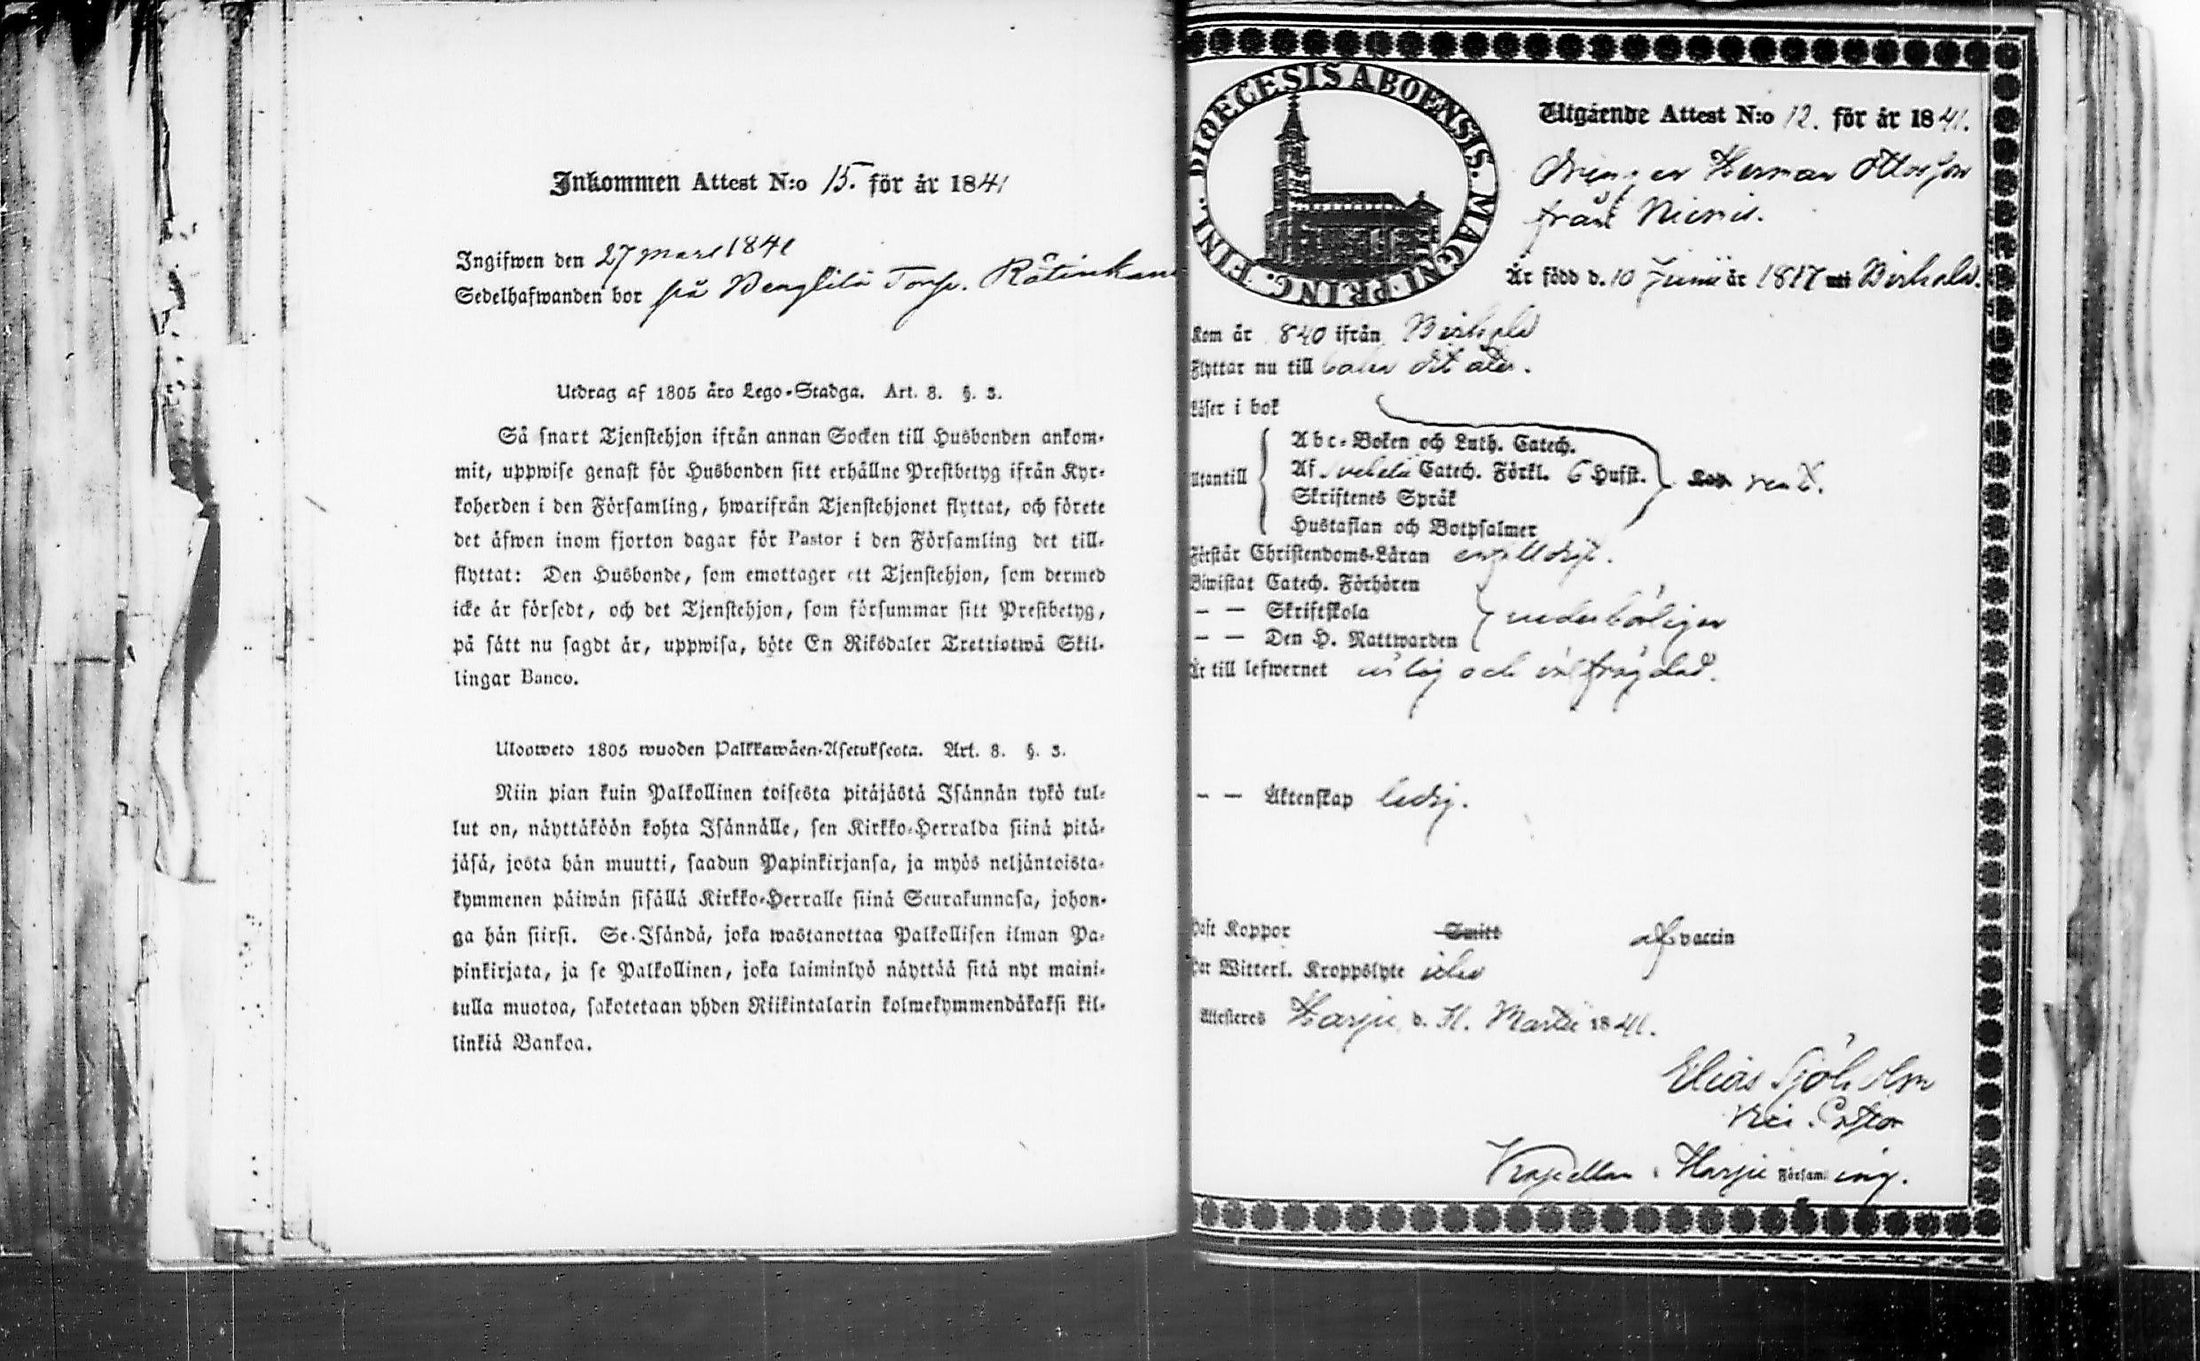 Inkommen Attest N:o 15. för år 1841
Ingifwen den 27 mars 1841
Sedelhafwanden bor på Torp.
Utdrag af 1805 års Lego-Stadga. Art. 8. §. 3.
Så snart Tjenstehjon ifrån annan Socken till Husbonden ankom-
mit, uppwise genast för Husbonden sitt erhållne Prestbetyg ifrån Kyr-
koherden i den Församling, hwarifrån Tjenstehjonet flyttat, och förete
det äfwen inom fjorton dagar för Pastor i den Församling det till-
flyttat: Den Husbonde, som emottager ett Tjenstehjon, som dermed
icke är försedt, och det Tjenstehjon, som försummar sitt Prestbetyg,
på sätt nu sagdt är, uppwisa, böte En Riksdaler Trettiotwå Skil-
lingar Banco.
Ulosweto 1805 wuoden Palkkawäen-Asetuksesta. Art. 8. §. 3.
Niin pian kuin Palkollinen toisesta pitäjästä Isännän tykö tul-
lut on, näyttäköön kohta Isännälle, sen Kirkko-Herralda siinä pitä-
jäsä, josta hän muutti, saadun Papinkirjansa, ja myös neljäntoista-
kymmenen päiwän sisällä Kirkko-Herralle siinä Seurakunnasa, johon-
ga hän siirsi. Se Isändä, joka wastanottaa Palkollisen ilman Pa-
pinkirjata, ja se Palkollinen, joka laiminlyö näyttää sitä nyt maini-
tulla muotoa, sakotetaan yhden Riikintalarin kolmekymmendäkaksi kil-
linkiä Bankoa.
DIOECESIS ABOENSIS. MAGNI PRINC. FINL.
Utgående Attest N:o 12. för år 1841.
Drengen Herman Ottosson
från
Är född d. 10 Junii år 1817 uti Birkala.
Kom år 840 ifrån Birkala
Flyttar nu till åter.
Läser i bok
Utantill
Abc-Boken och Luth. Catech.
Af Svebelii Catech. Förkl. 6 Hufst.
Skriftenes Språk
Hustaflan och Botpsalmer
Förstår Christendoms-Läran enfalldigt.
Biwistat Catech. Förhören
— — Skriftskola
— — Den H. Nattwarden
vederbörligen
Är till lefwernet ärlig och välfrägdad.
— — Äktenskap ledig.
Haft Koppor Smitt af vaccin
Har Witterl. Kroppslyte icke
Attesteres Harju d. Martii 1841.
Elias Sjöholm
Vice Pastor
Kapellan i Harju Församling.